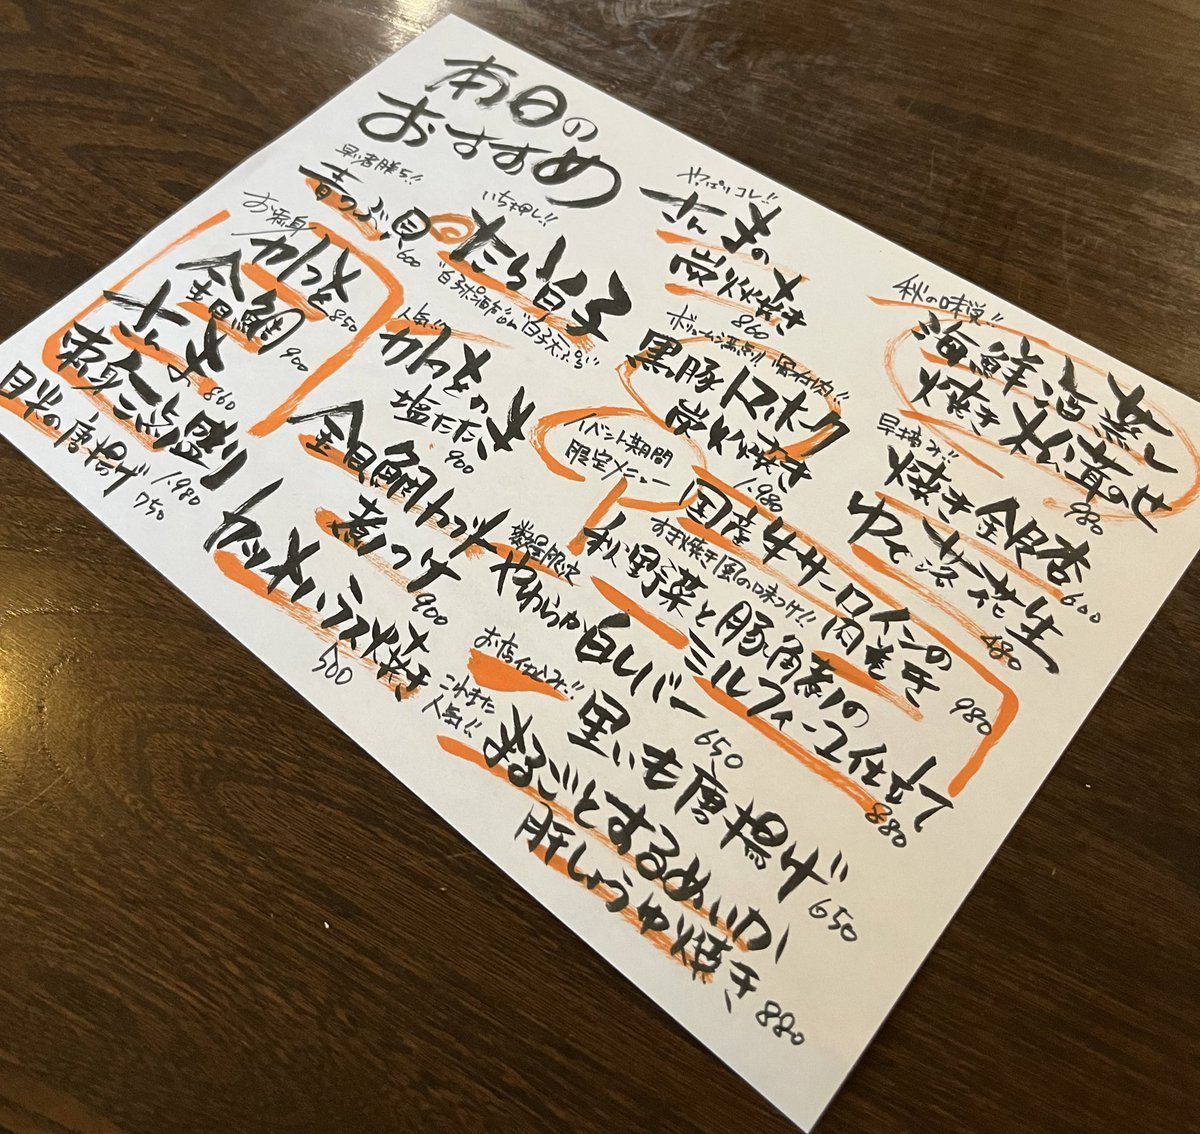 本日の
おすすめ
早い者勝ち!!
青つぶ貝
600
いち押し!!
たら白子
"白子ポン酢"or"白子天ぷら"
お刺身
かつを
850
金目鯛
900
さんま
860
刺身三点盛り
1,980
目光の唐揚げ
750
人気!!
かつをの
塩たたき
900
金目鯛カブト
煮つけ
900
500
やっぱりコレ!!
さんまの
炭火焼き
860
ボリューム満点!!骨付肉!!
黒豚トマホーク
炭火焼き
1,980
イベント期間
限定メニュー
国産牛サーロインの
肉巻き
980
すき焼き風の味つけ!!
秋野菜と豚角煮の
ミルフィーユ仕立て
880
数量限定
やわらか白レバー
650
お店仕込み!!
里いも唐揚げ
650
これまた
人気!!
まるごとするめいか
肝しょうゆ焼き
880
秋の味覚!!
海鮮酒蒸し
焼き松茸のせ
980
早摘み!!
焼き銀杏
600
ゆで落花生
480